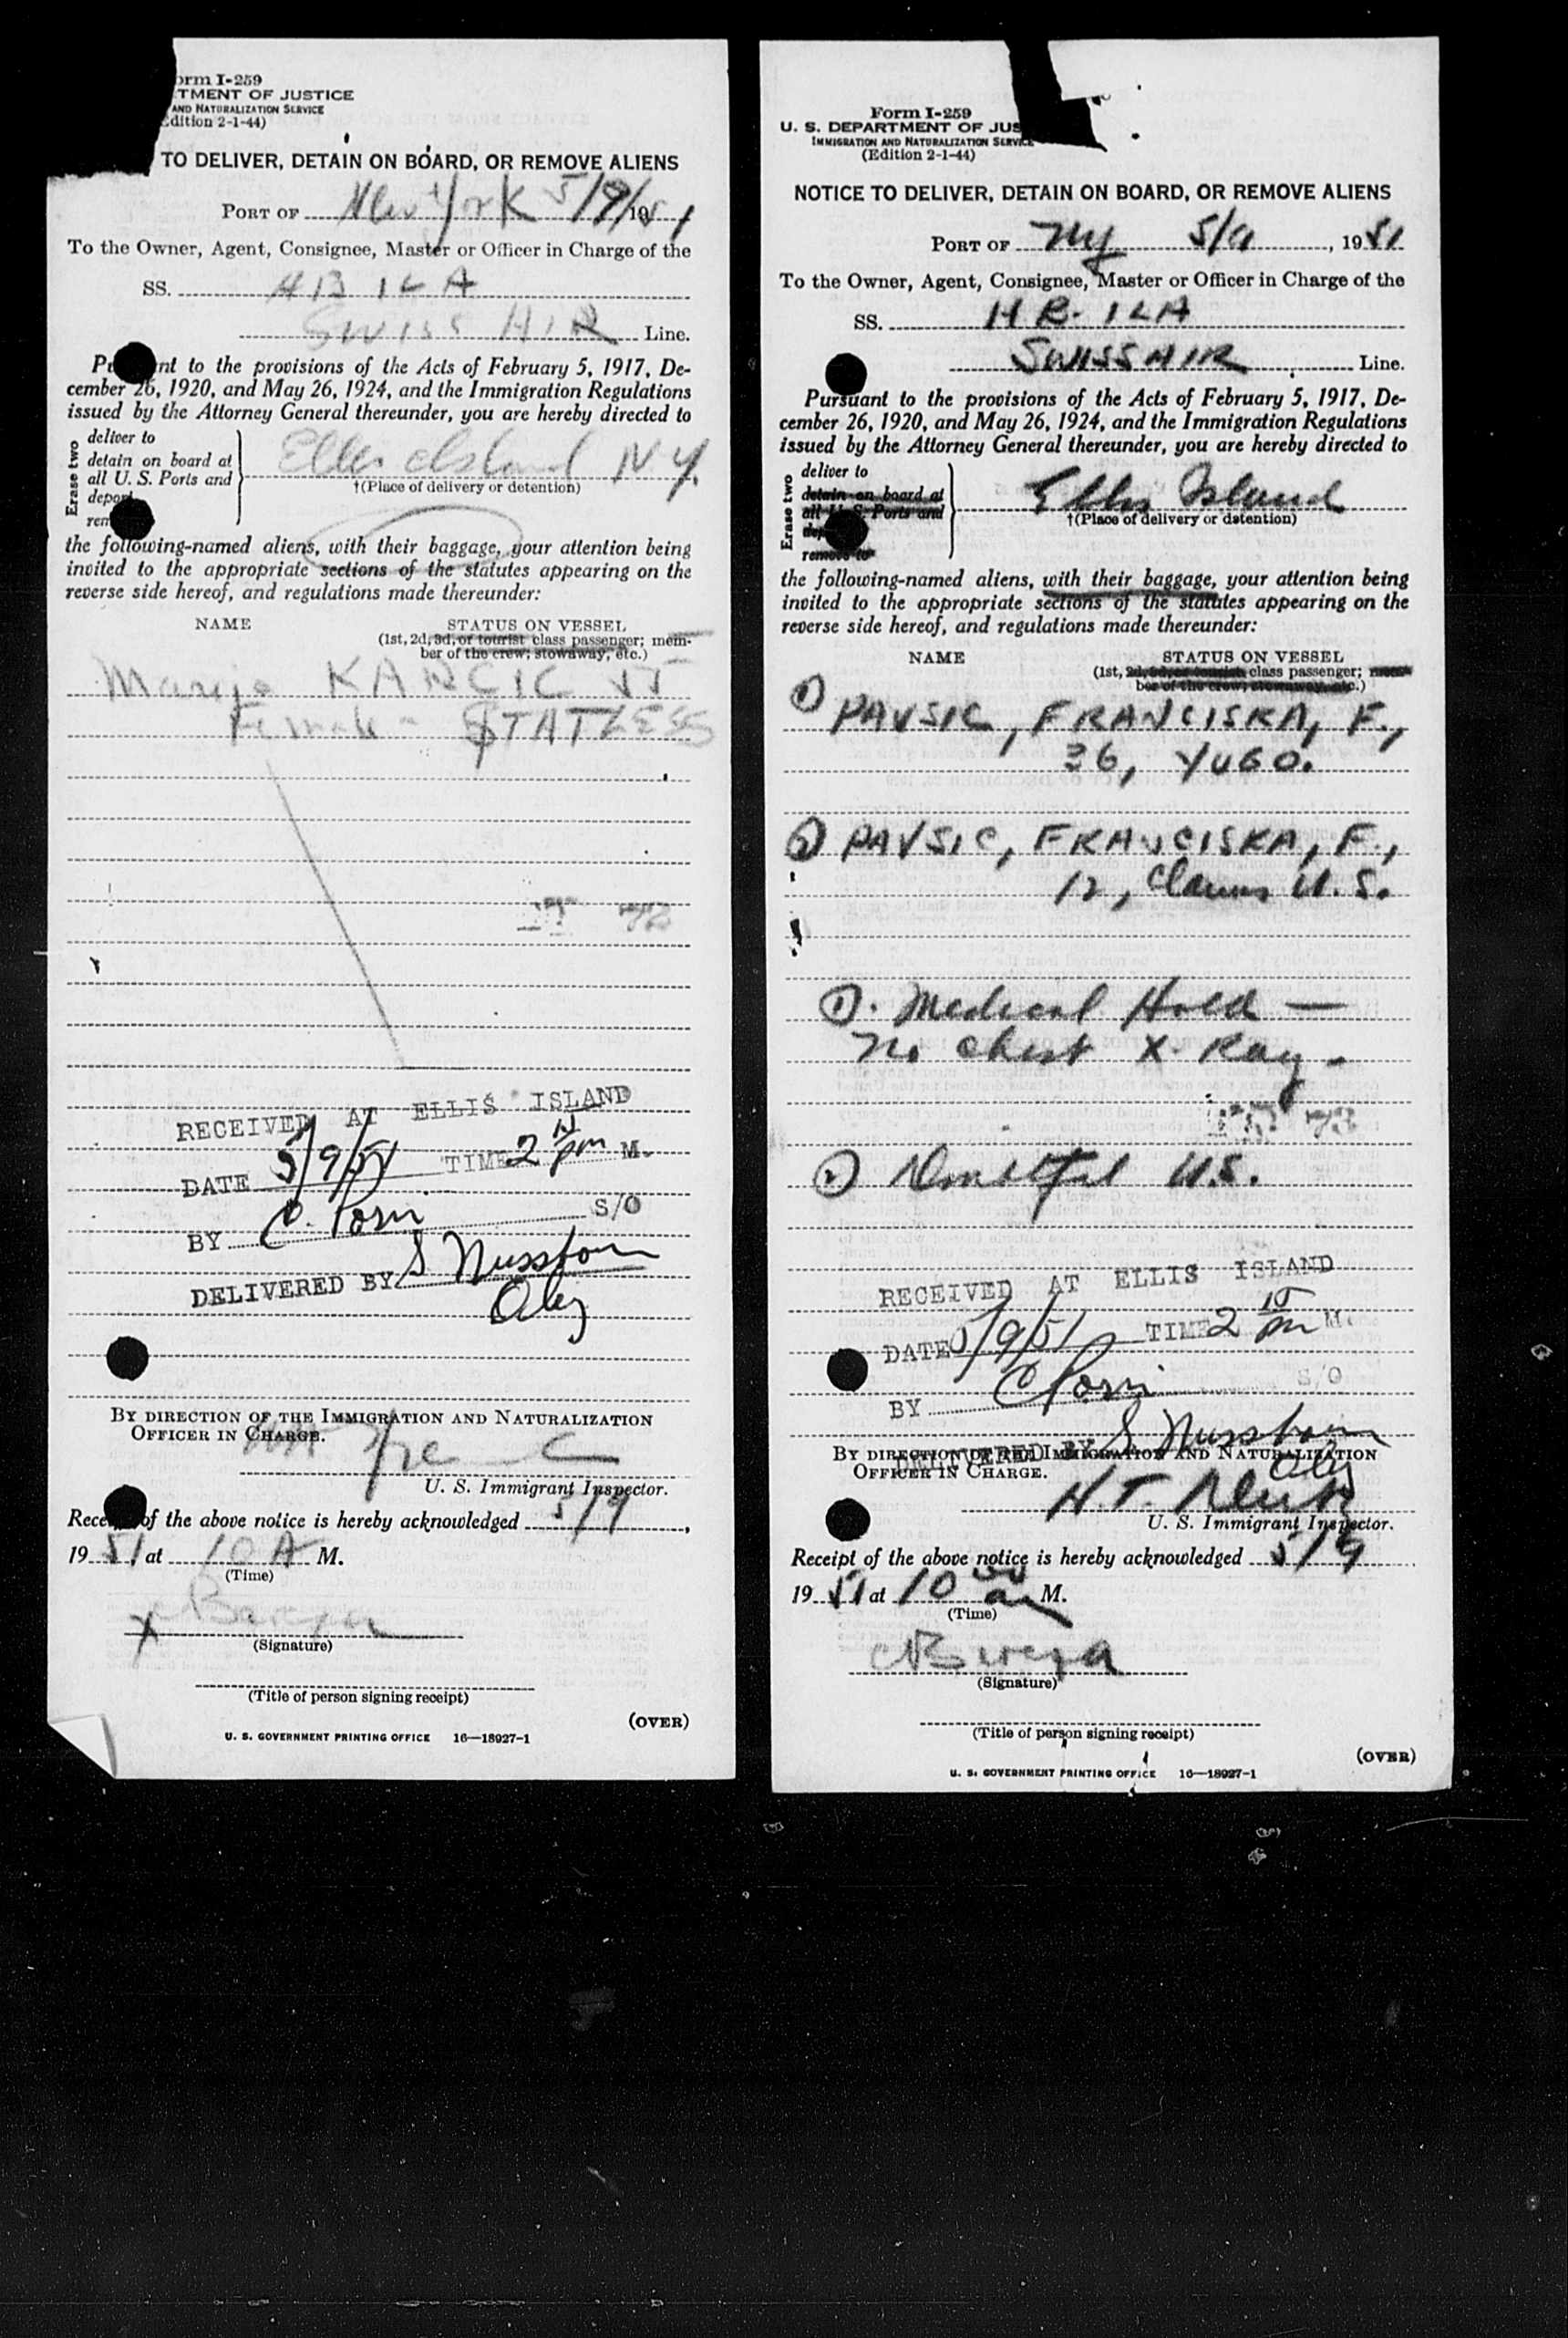 orm I-259
TMENT OF JUSTICE
AND NATURALIZATION SERVICE
dition 2-1-44)
TO DELIVER, DETAIN ON BOARD, OR REMOVE ALIENS
PORT OF New York 5/9/1951
To the Owner, Agent, Consignee, Master or Officer in Charge of the
SS. HB ILA
SWISS AIR Line.
Pu nt to the provisions of the Acts of February 5, 1917, De-
cember 26, 1920, and May 26, 1924, and the Immigration Regulations
issued by the Attorney General thereunder, you are hereby directed to
Erase two
deliver to
detain on board at
all U. S. Ports and
depor
rem
Ellis Island N Y.
†(Place of delivery or detention)
the following-named aliens, with their baggage, your attention being
invited to the appropriate sections of the statutes appearing on the
reverse side hereof, and regulations made thereunder:
NAME STATUS ON VESSEL
(1st, 2d, 3d, or tourist class passenger; mem-
ber of the crew; stowaway, etc.)
Marija KANCIC
Female - STATLESS
RECEIVED AT ELLIS ISLAND
DATE 5/9/51 TIME 2 pm M.
BY C. S/O
DELIVERED BY S
BY DIRECTION OF THE IMMIGRATION AND NATURALIZATION
OFFICER IN CHARGE.
U. S. Immigrant Inspector.
Rece of the above notice is hereby acknowledged 5/9,
19 51 at 10 A M.
(Time)
X
(Signature)
(Title of person signing receipt)
(OVER)
U. S. GOVERNMENT PRINTING OFFICE 16—18927-1
Form I-259
U. S. DEPARTMENT OF JUS
IMMIGRATION AND NATURALIZATION SERVICE
(Edition 2-1-44)
NOTICE TO DELIVER, DETAIN ON BOARD, OR REMOVE ALIENS
PORT OF NY 5/9, 1951
To the Owner, Agent, Consignee, Master or Officer in Charge of the
SS. HB-ILA
SWISSAIR Line.
Pursuant to the provisions of the Acts of February 5, 1917, De-
cember 26, 1920, and May 26, 1924, and the Immigration Regulations
issued by the Attorney General thereunder, you are hereby directed to
Erase two
deliver to
detain on board at
all U. S. Ports and
dep
remove to
Ellis Island
†(Place of delivery or detention)
the following-named aliens, with their baggage, your attention being
invited to the appropriate sections of the statutes appearing on the
reverse side hereof, and regulations made thereunder:
NAME STATUS ON VESSEL
(1st, 2d, 3d, or tourist class passenger; mem-
ber of the crew, stowaway, etc.)
1) PAVSIC, FRANCISKA, F.,
36, YUGO.
2) PAVSIC, FRANCISKA, F.,
12, Claims U.S.
1). Medical Hold —
No chest X-Ray -
2) Doubtful U.S.
RECEIVED AT ELLIS ISLAND
DATE 5/9/51 TIME 2 10 pm M.
BY C S/O
DELIVERED BY S
BY DIRECTION OF THE IMMIGRATION AND NATURALIZATION
OFFICER IN CHARGE.
H.T.
U. S. Immigrant Inspector.
Receipt of the above notice is hereby acknowledged 5/9
19 51 at 10 00 am M.
(Time)
(Signature)
(Title of person signing receipt)
(OVER)
U. S. GOVERNMENT PRINTING OFFICE 16—18927-1